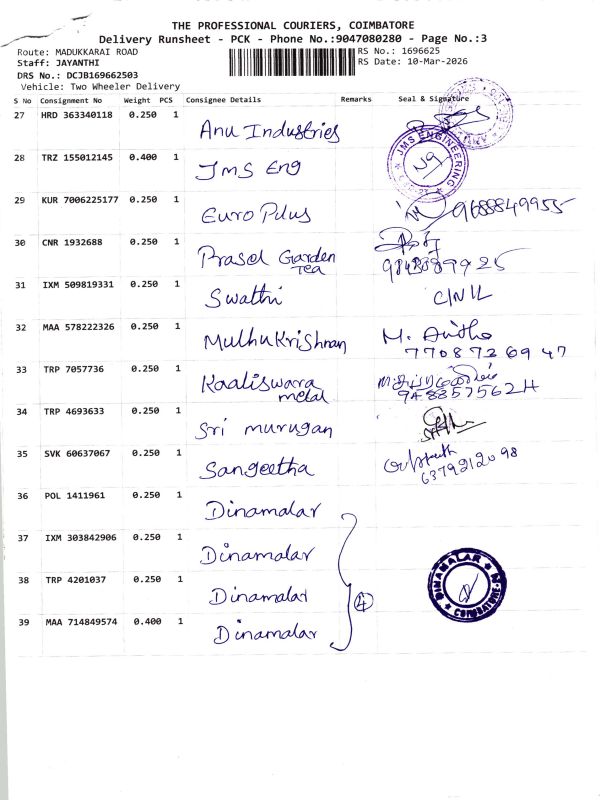 THE PROFESSIONAL COURIERS, COIMBATORE
Delivery Runsheet - PCK - Phone No.:9047080280 - Page No.:3
Route: MADUKKARAI ROAD
RS No.: 1696625
Staff: JAYANTHI
RS Date: 10-Mar-2026
DRS No.: DCJB169662503
Vehicle: Two Wheeler Delivery
S No Consignment No Weight PCS Consignee Details Remarks Seal & Signature
27 HRD 363340118 0.250 1 Anu Industries
28 TRZ 155012145 0.400 1 JMS Eng
JMS ENGINEERING
29 KUR 7006225177 0.250 1 Euro Plus 9688849955
30 CNR 1932688 0.250 1 Prasol Garden
Tea
31 IXM 509819331 0.250 1 Swathi
32 MAA 578222326 0.250 1 Muthukrishnan M. Anitha
7708726947
33 TRP 7057736 0.250 1 Kaaliswara
metal
34 TRP 4693633 0.250 1 Sri murugan
35 SVK 60637067 0.250 1 Sangeetha
6379212098
36 POL 1411961 0.250 1 Dinamalar
37 IXM 303842906 0.250 1 Dinamalar
38 TRP 4201037 0.250 1 Dinamalar
4
DINAMALAR
COIMBATORE
39 MAA 714849574 0.400 1 Dinamalar